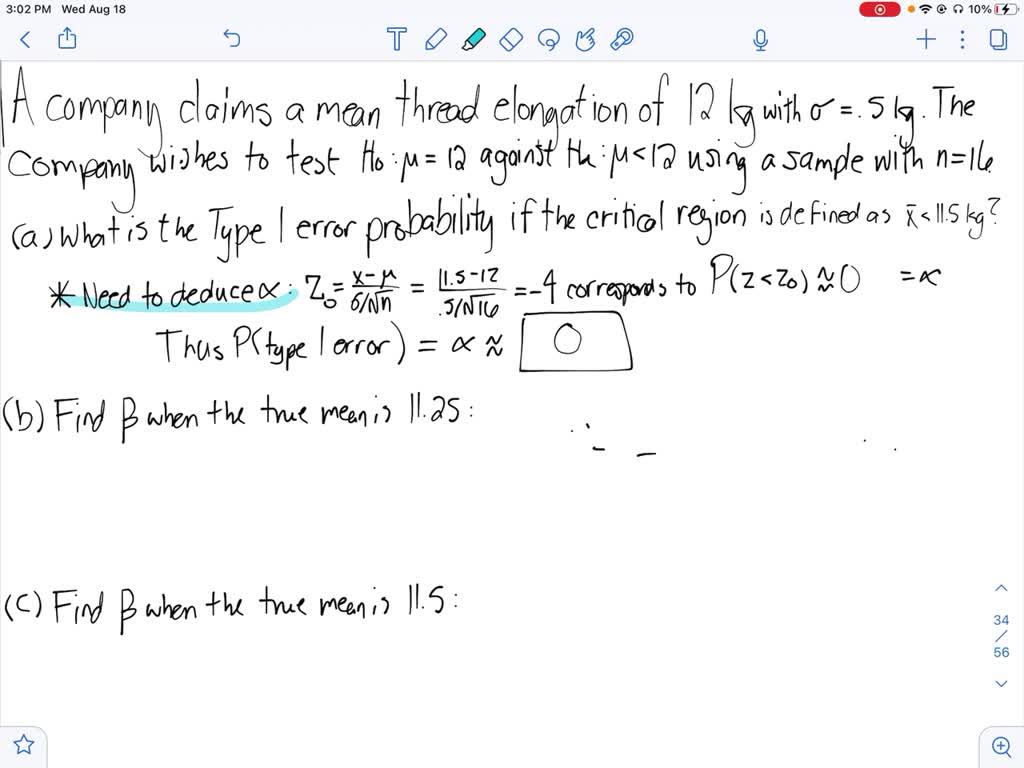 3:02 PM Wed Aug 18
10%
A company claims a mean thread elongation of 12 kg with σ = .5 kg. The
Company wishes to test H₀ : μ = 12 against Hₐ : μ < 12 using a sample with n=16.
(a) What is the Type 1 error probability if the critical region is defined as x̄ < 11.5 kg?
* Need to deduce α : Z₀ = x-μ / σ/√n = 11.5-12 / .5/√16 = -4 corresponds to P(Z < Z₀) ≈ 0 = α
Thus P(type 1 error) = α ≈ 0
(b) Find β when the true mean is 11.25 :
(c) Find β when the true mean is 11.5 :
34
/
56